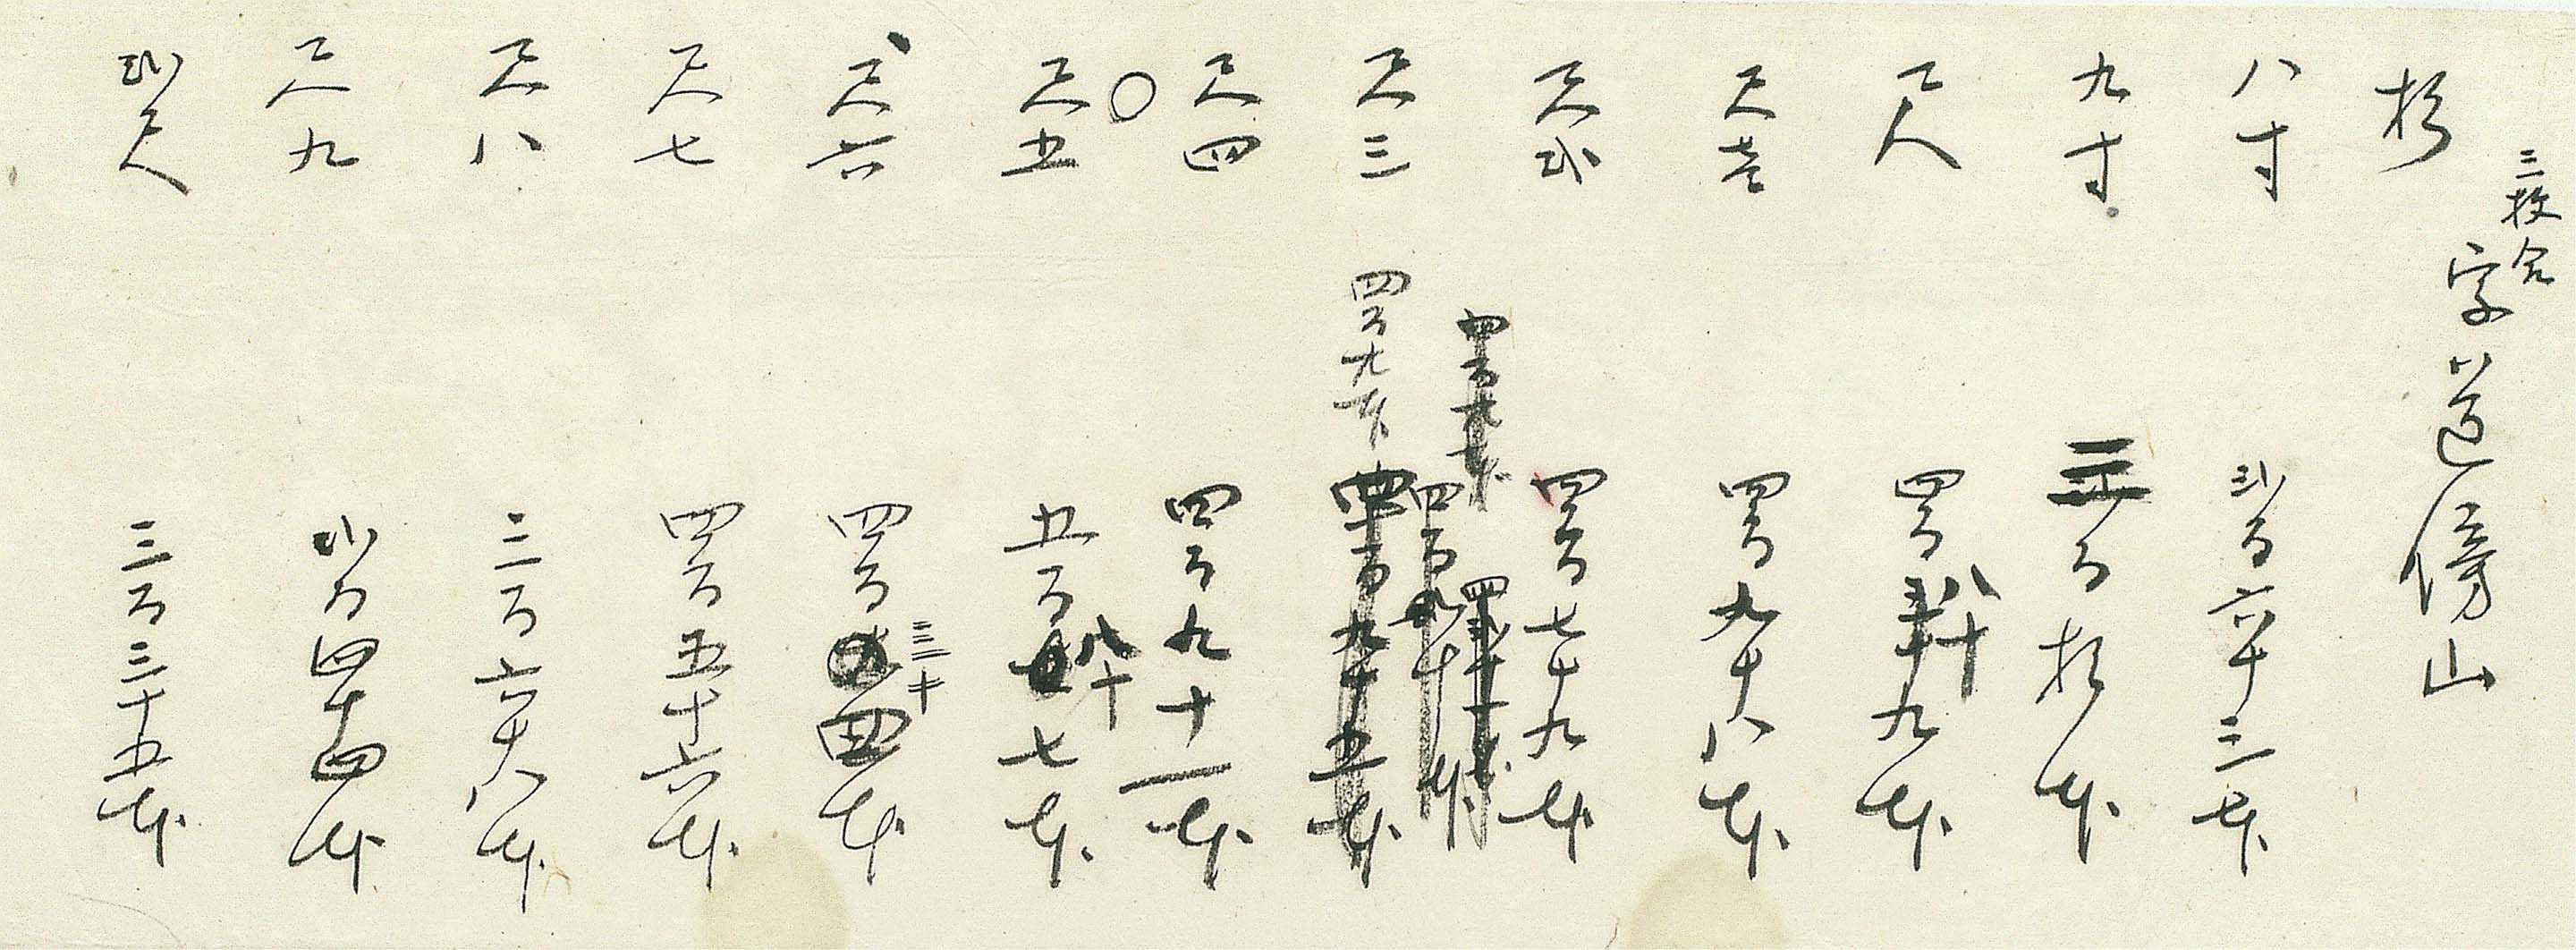 三枚合
字道傍山
杉
八寸 弐百六十三本
九寸 三百拾本
壱尺 四百八十九本
尺壱 四百九十八本
尺弐 四百七十九本
尺三 四百九本
尺四 四百九十一本
尺五 五百八十七本
尺六 四百三十四本
尺七 四百五十六本
尺八 三百六十八本
尺九 弐百四十四本
弐尺 三百三十五本